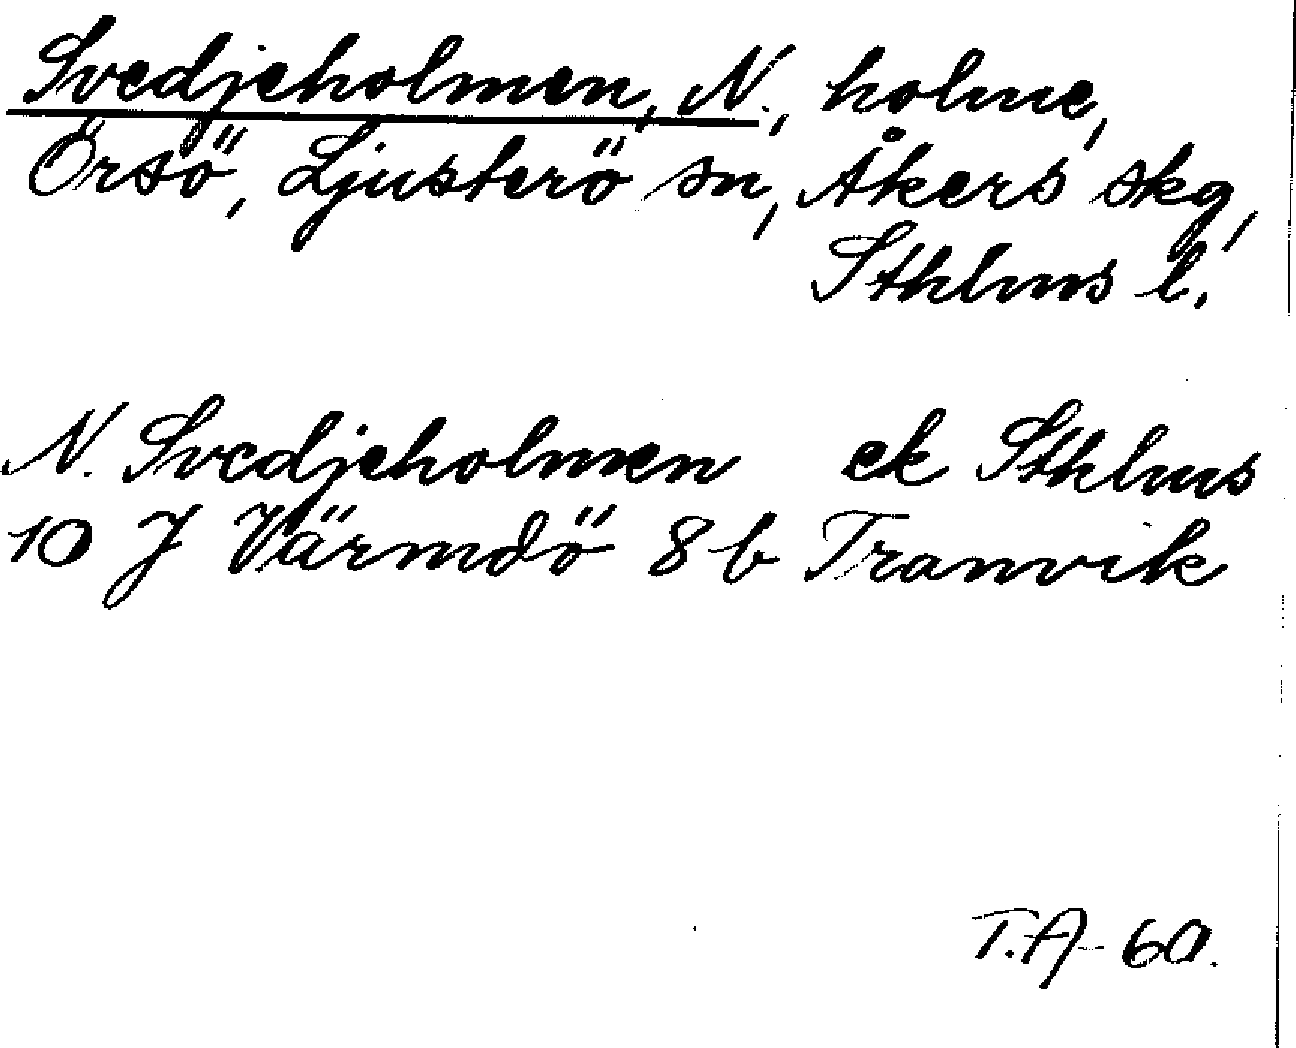 Svedjeholmen, N., holme,
Örsö, Ljusterö sn, Åkers skg,
Sthlms l.
N. Svedjeholmen ek Sthlms
10 J Värmdö 8 b Tranvik
T.A 60.